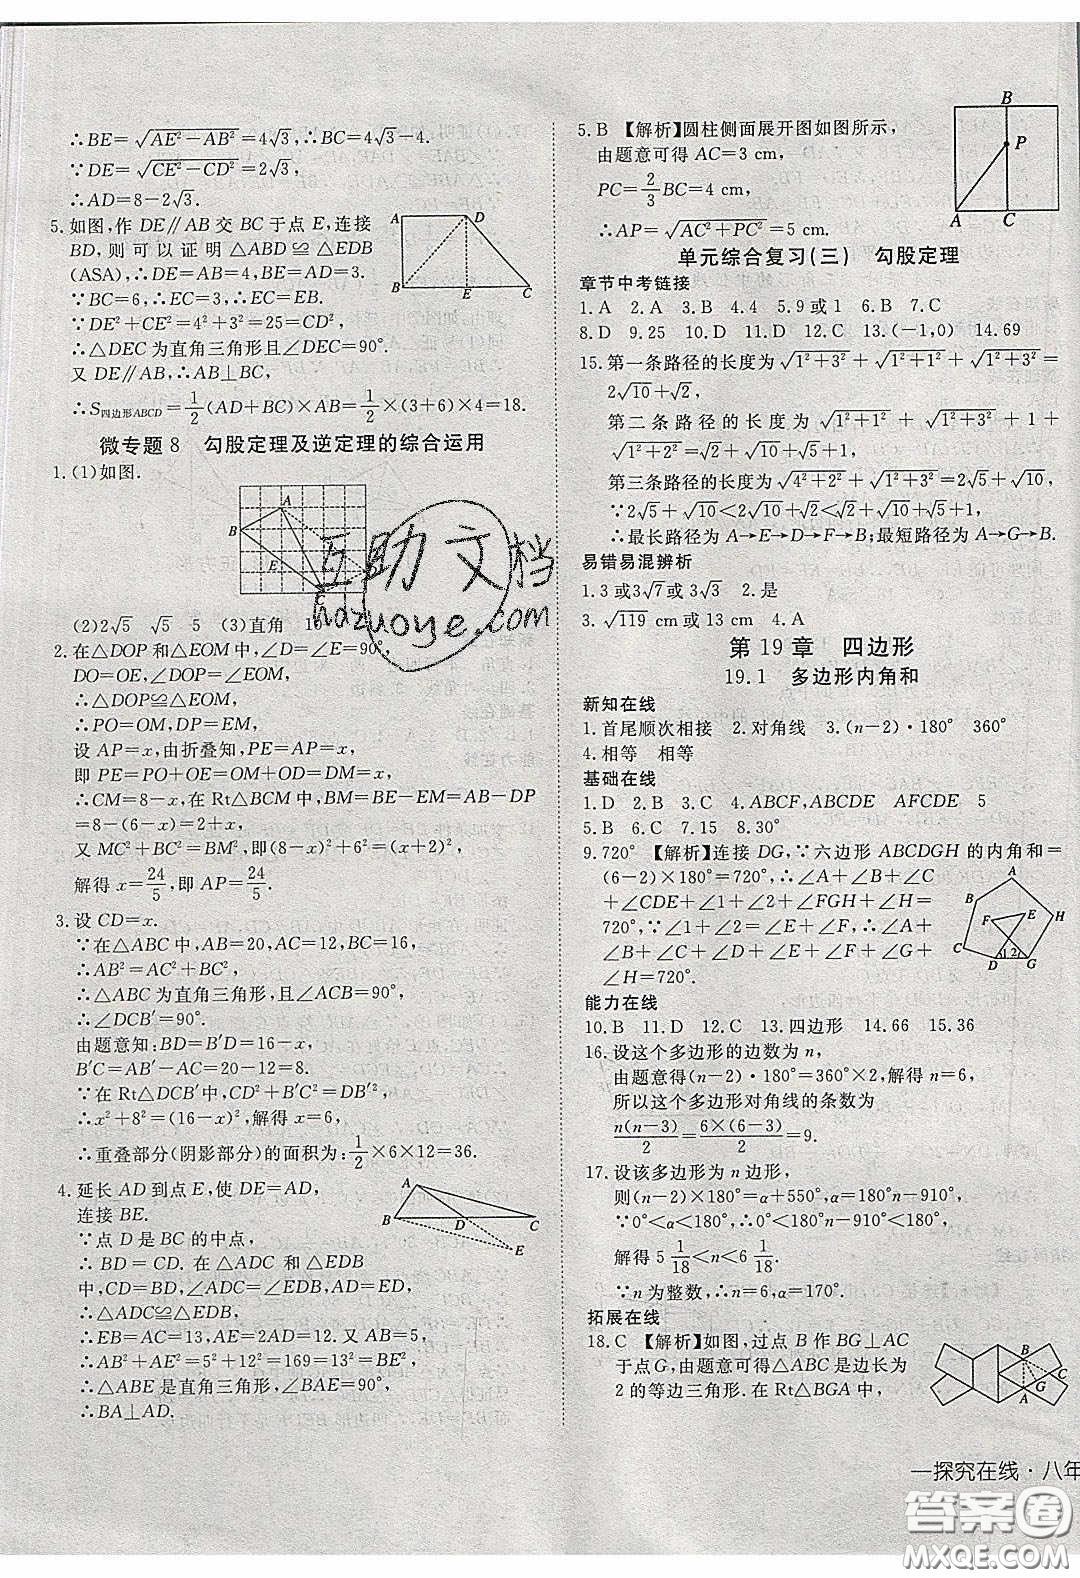 ∴BE=√(AE²−AB²)=4√3,∴BC=4√3−4.
∵DE=√(CE²−CD²)=2√3,
∴AD=8−2√3.
5.如图,作DE∥AB交BC于点E,连接
BD,则可以证明△ABD≌△EDB
(ASA),∴DE=AB=4,BE=AD=3.
∵BC=6,∴EC=EB=3.
∵DE²+CE²=4²+3²=25=CD²,
∴△DEC为直角三角形且∠DEC=90°.
又DE∥AB,∴AB⊥BC,
∴S四边形ABCD=1/2(AD+BC)×AB=1/2×(3+6)×4=18.
A D
B E C
微专题8 勾股定理及逆定理的综合运用
1.(1)如图.
A
B
E
C
(2)2√5 √5 5 (3)直角 10
2.在△DOP和△EOM中,∠D=∠E=90°,
DO=OE,∠DOP=∠EOM,
∴△DOP≌△EOM,
∴PO=OM,DP=EM,
设AP=x,由折叠知,PE=AP=x,
即PE=PO+OE=OM+OD=DM=x,
∴CM=8−x,在Rt△BCM中,BM=BE−EM=AB−DP
=8−(6−x)=2+x,
又MC²+BC²=BM²,即(8−x)²+6²=(x+2)²,
解得x=24/5,即AP=24/5.
3.设CD=x.
∵在△ABC中,AB=20,AC=12,BC=16,
∴AB²=AC²+BC²,
∴△ABC为直角三角形,且∠ACB=90°,
∴∠DCB′=90°.
由题意知:BD=B′D=16−x,
B′C=AB′−AC=20−12=8.
∵在Rt△DCB′中,CD²+B′C²=DB′²,
∴x²+8²=(16−x)²,解得x=6.
∴重叠部分(阴影部分)的面积为:1/2×6×12=36.
4.延长AD到点E,使DE=AD,
连接BE.
∵点D是BC的中点,
∴BD=CD.在△ADC和△EDB
中,CD=BD,∠ADC=∠EDB,AD=ED,
∴△ADC≌△EDB,
∴EB=AC=13,AE=2AD=12.又AB=5,
∴AB²+AE²=5²+12²=169=13²=BE²,
∴△ABE是直角三角形,∠BAE=90°,
∴BA⊥AD.
A
B D C
E
5.B 【解析】圆柱侧面展开图如图所示,
由题意可得AC=3 cm,
PC=2/3BC=4 cm,
∴AP=√(AC²+PC²)=5 cm.
B
P
A C
单元综合复习(三) 勾股定理
章节中考链接
1.A 2.A 3.B 4.4 5.9或1 6.B 7.C
8.D 9.25 10.D 11.D 12.C 13.(−1,0) 14.69
15.第一条路径的长度为√(1²+3²)+√(1²+1²)+√(1²+3²)=
2√10+√2,
第二条路径的长度为√(1²+1²)+√(1²+3²)+1
+√(1²+2²)=√2+√10+√5+1,
第三条路径的长度为√(4²+2²)+√(1²+3²)=2√5+√10,
∵2√5+√10<2√10+√2<√2+√10+√5+1,
∴最长路径为A→E→D→F→B;最短路径为A→G→B.
易错易混辨析
1.3或3√7或3√3 2.是
3.√119 cm或13 cm 4.A
第19章 四边形
19.1 多边形内角和
新知在线
1.首尾顺次相接 2.对角线 3.(n−2)·180° 360°
4.相等 相等
基础在线
1.D 2.B 3.C 4.ABCF,ABCDE AFCDE 5
5.B 6.C 7.15 8.30°
9.720° 【解析】连接DG,∵六边形ABCDGH的内角和=
(6−2)×180°=720°,∴∠A+∠B+∠C
+∠CDE+∠1+∠2+∠FGH+∠H=
720°,∵∠1+∠2=∠E+∠F,∴∠A+
∠B+∠C+∠D+∠E+∠F+∠G+
∠H=720°.
A
B
F E H
C
D 1 2 G
能力在线
10.B 11.D 12.C 13.四边形 14.66 15.36
16.设这个多边形的边数为n,
由题意得(n−2)·180°=360°×2,解得n=6,
所以这个多边形对角线的条数为
n(n−3)/2=6×(6−3)/2=9.
17.设该多边形为n边形,
则(n−2)×180°=α+550°,α=180°n−910°,
∵0°<α<180°,∴0°<180°n−910°<180°,
解得5 1/18<n<6 1/18.
∵n为整数,∴n=6,α=170°.
拓展在线
18.C 【解析】如图,过点B作BG⊥AC
于点G,由题意可得△ABC是边长为
2的等边三角形.在Rt△BGA中,
B C
G
A
—探究在线·八年
互助文档
hazuoye.com
答案圈
MXQE.COM